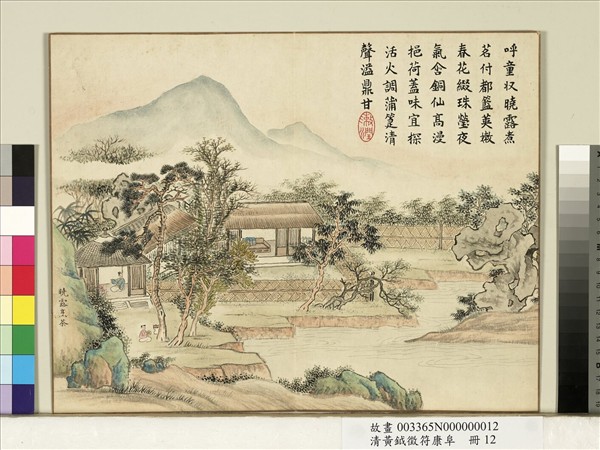 呼童収曉露煮
茗付都籃英嫩
春花綴珠瑩夜
氣含銅仙髙浸
挹荷蓋味宜探
活火調蒲箑清
聲溢鼎甘
曉露烹茶
故畫 003365N000000012
清黃鉞徵符康阜 冊 12